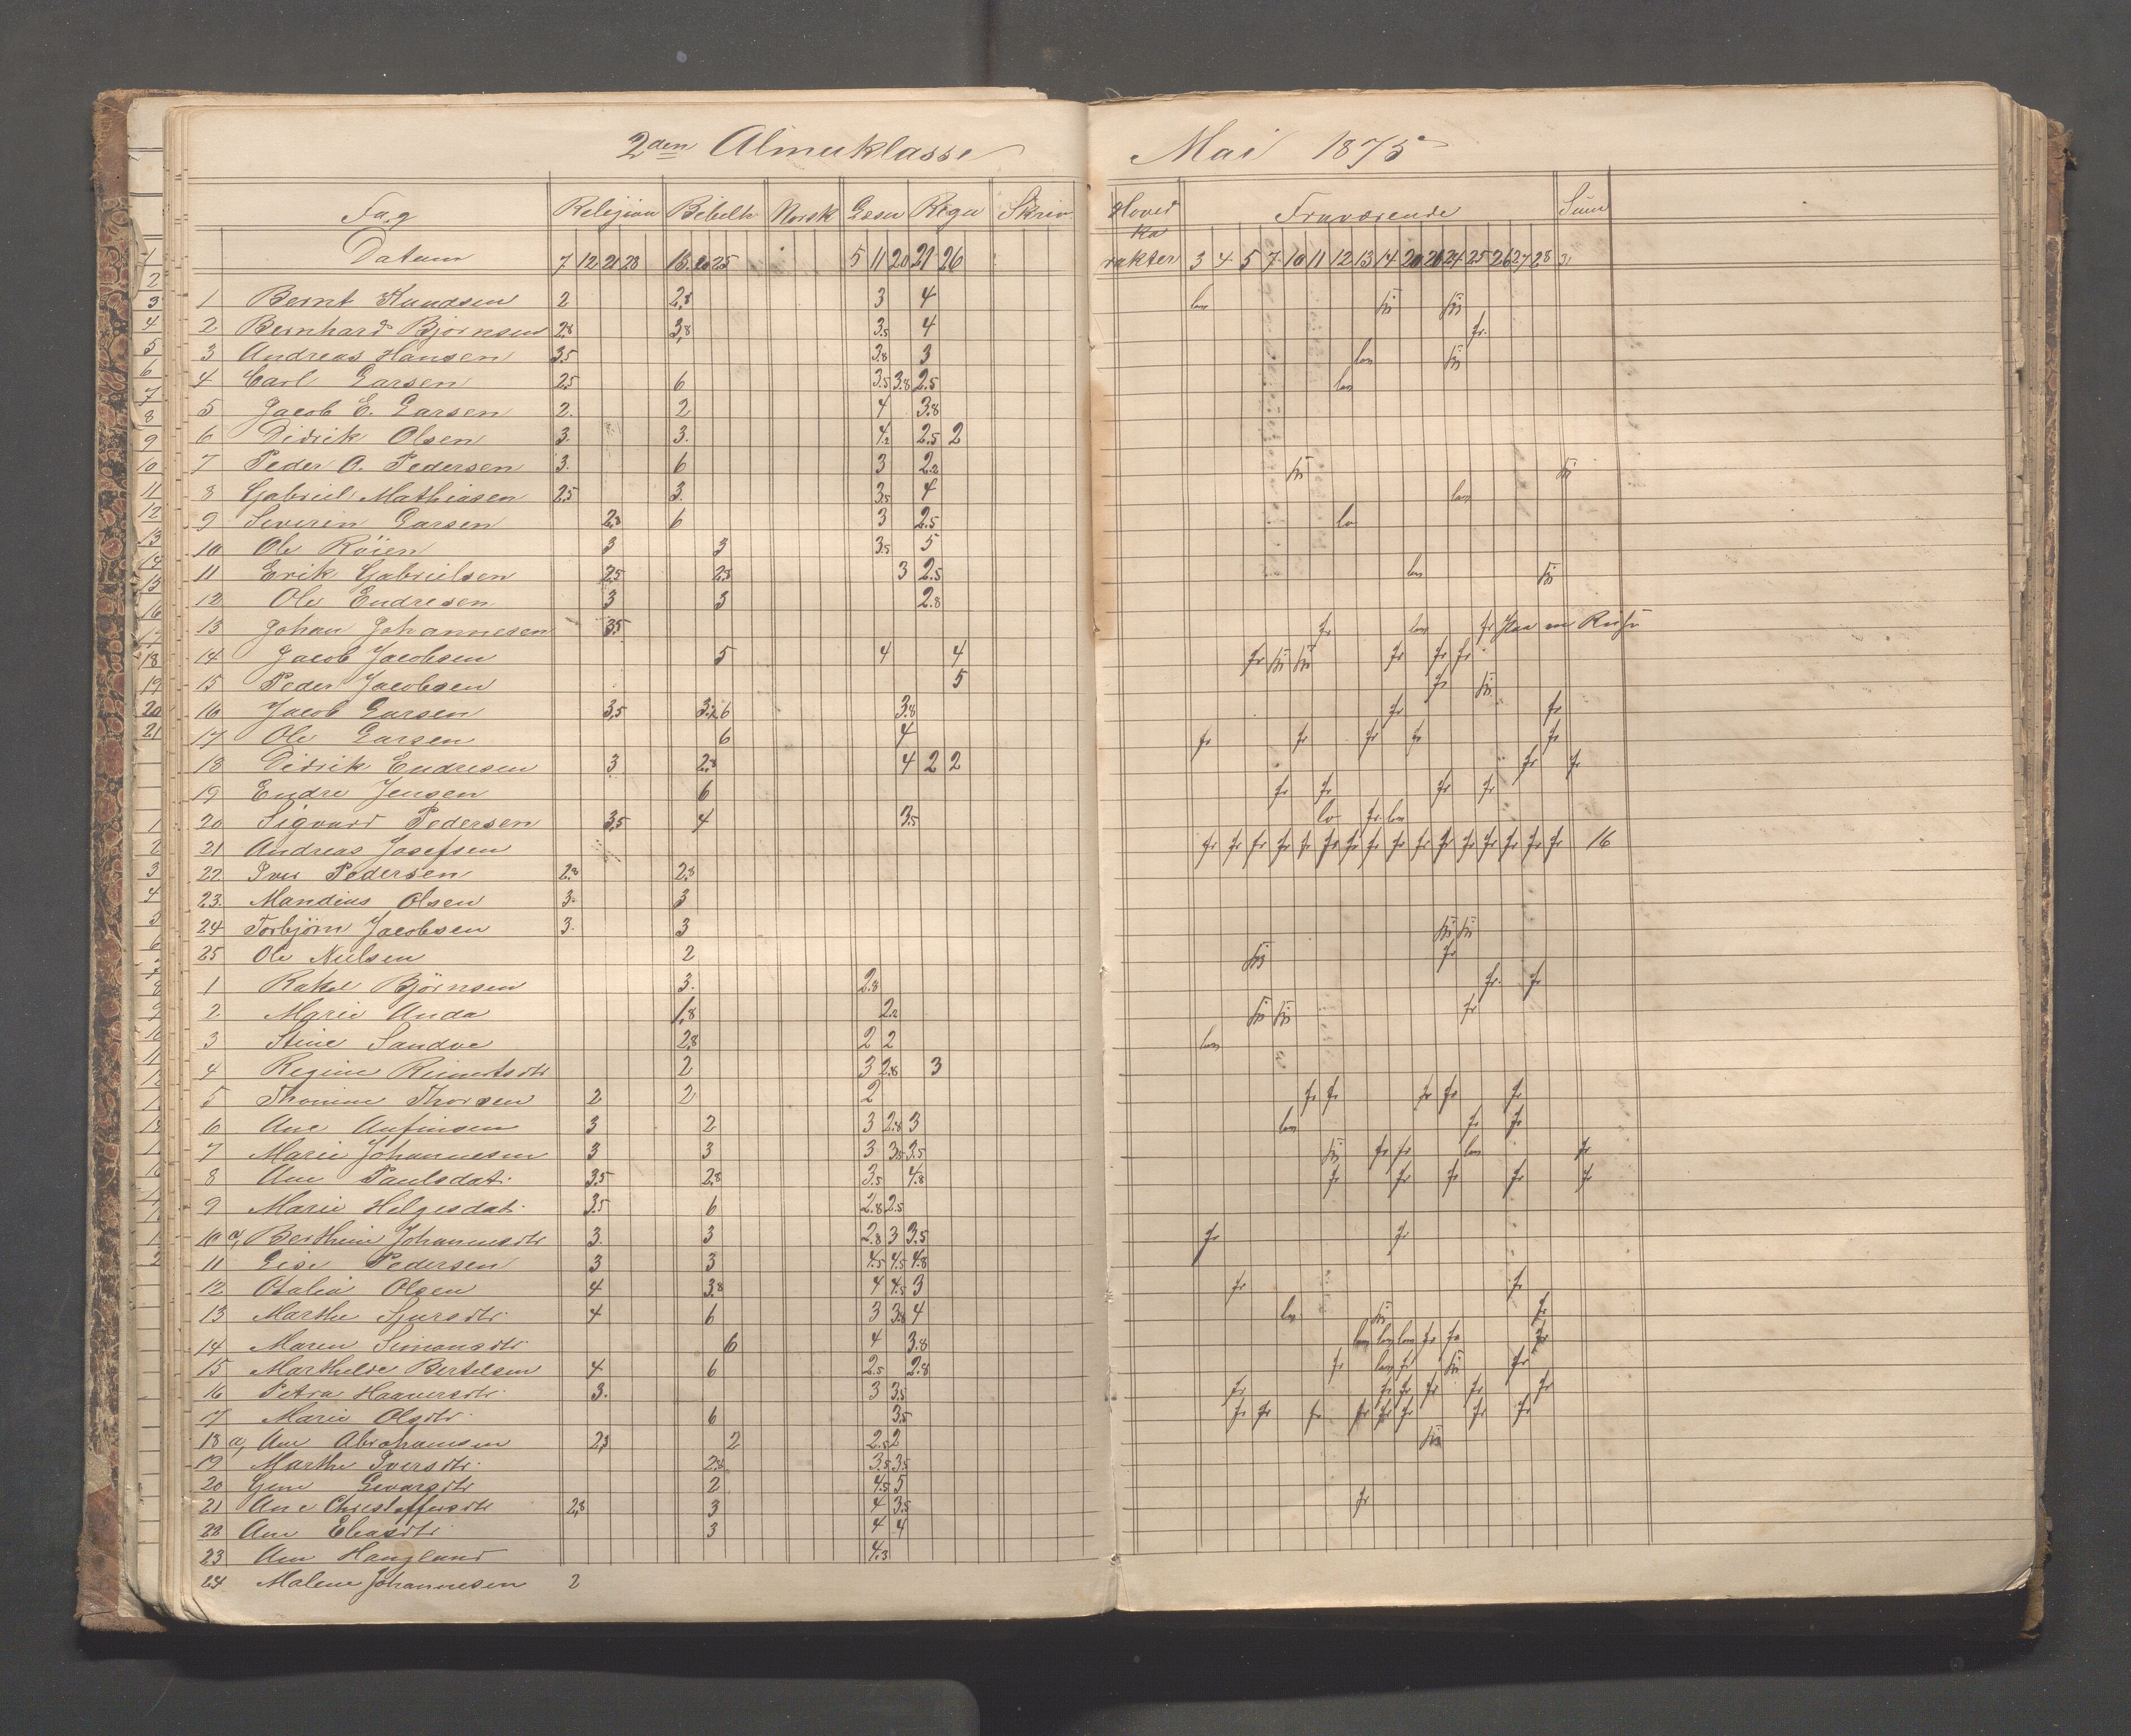 2den Almueklasse Mai 1875
Fag Religion Bibelh Norsk Læsn Regn Skriv Hoved Fraværende Sum
ka
Datum 7 12 21 28 18 20 25 5 11 20 21 26 rakter 3 4 5 7 10 11 12 13 14 20 21 24 25 26 27 28 31
1 Bernt Knudsen 2 2,8 3 4 lov
2 Bernhard Bjørnsen 2,8 3,8 3.5 4 fr.
3 Andreas Hansen 3.5 3.8 3 lov
4 Carl Larsen 2.5 6 3.5 3.8 2.5 lov
5 Jacob E. Larsen 2. 2 4 3.8
6 Didrik Olsen 3. 3. 4.2 2.5 2
7 Peder A. Pedersen 3. 6 3 2.2
8 Gabriel Mathiasen 2.5 3. 3.5 4 lov
9 Severin Larsen 2,8 6 3 2.5 lo
10 Ole Röien 3 3 3.5 5
11 Erik Gabrielsen 2,5 2,8 3 2.5 lov
12 Ole Endresen 3 3 2.8
13 Johan Johannesen 3.5 fr lov fr
14 Jacob Jacobsen 5 4 4 fr fr fr fr
15 Peder Jacobsen 5 fr
16 Jacob Larsen 3,5 3.2 6 3.8 fr fr
17 Ole Larsen 6 4 fr fr fr fr fr
18 Didrik Endresen 3 2,8 4 2 2 fr fr
19 Endre Jensen 6 fr fr fr fr
20 Sigvard Pedersen 3,5 4 3.5 lo fr. lov
21 Andreas Josefsen fr fr fr fr fr fr fr fr fr fr fr fr fr fr fr fr 16
22 Iver Pedersen 2.8 2,8
23. Mandius Olsen 3. 3
24 Torbjörn Jacobsen 3. 3
25 Ole Nielsen 2 fr
1 Rakel Björnsen 3. 2.8 fr. fr
2 Marie Anda 1,8 2.2 fr
3 Stine Sandve 2,8 2 2 lov
4 Regine 2 3 2.8 3
5 Thomine Thorsen 2 2 2 fr fr fr fr fr
6 Ane Anfinsen 3 2 3 2.8 3 lov fr fr
7 Marie Johannesen 3 3 3 3.5 3.5 fr fr lov fr
8 Ane Paulsdat. 3.5 2,8 3.5 4.8 fr fr fr fr fr
9 Marie Helgesdat. 3.5 6 2.8 2.5
10 a, Berthine Johannesdtr 3. 3 2.8 3 3.5 fr fr
11 Lise Pedersen 3 3 4.5 4.5 4.8
12 Otalia Olsen 4 3,8 4 4.5 3 fr fr
13 Marthe Sjursdtr. 4 6 3 3.8 4 lov fr
14 Maren Simonsdtr. 6 4 3.8 lov lov lov fr fr fr
15 Marthilde Bertelsen 4 6 2.5 2.8 fr lov fr fr
16 Petra Haaversdtr. 3. 3 3.5 fr fr fr fr fr fr
17 Marie Olsdtr. 6 3.5 fr fr fr fr fr fr fr fr
18 a, Ane Abrahamsen 2,3 2 2.5 2
19 Marthe Iversdtr. 2.8 3.5 3.5
20 2 4.5 5
21 Ane Christoffersdtr 2,8 3 4 3.5 fr
22 Ane Eliasdtr. 3 4 4
23 Ane Haugland 4.3
24 Malene Johannesen 2